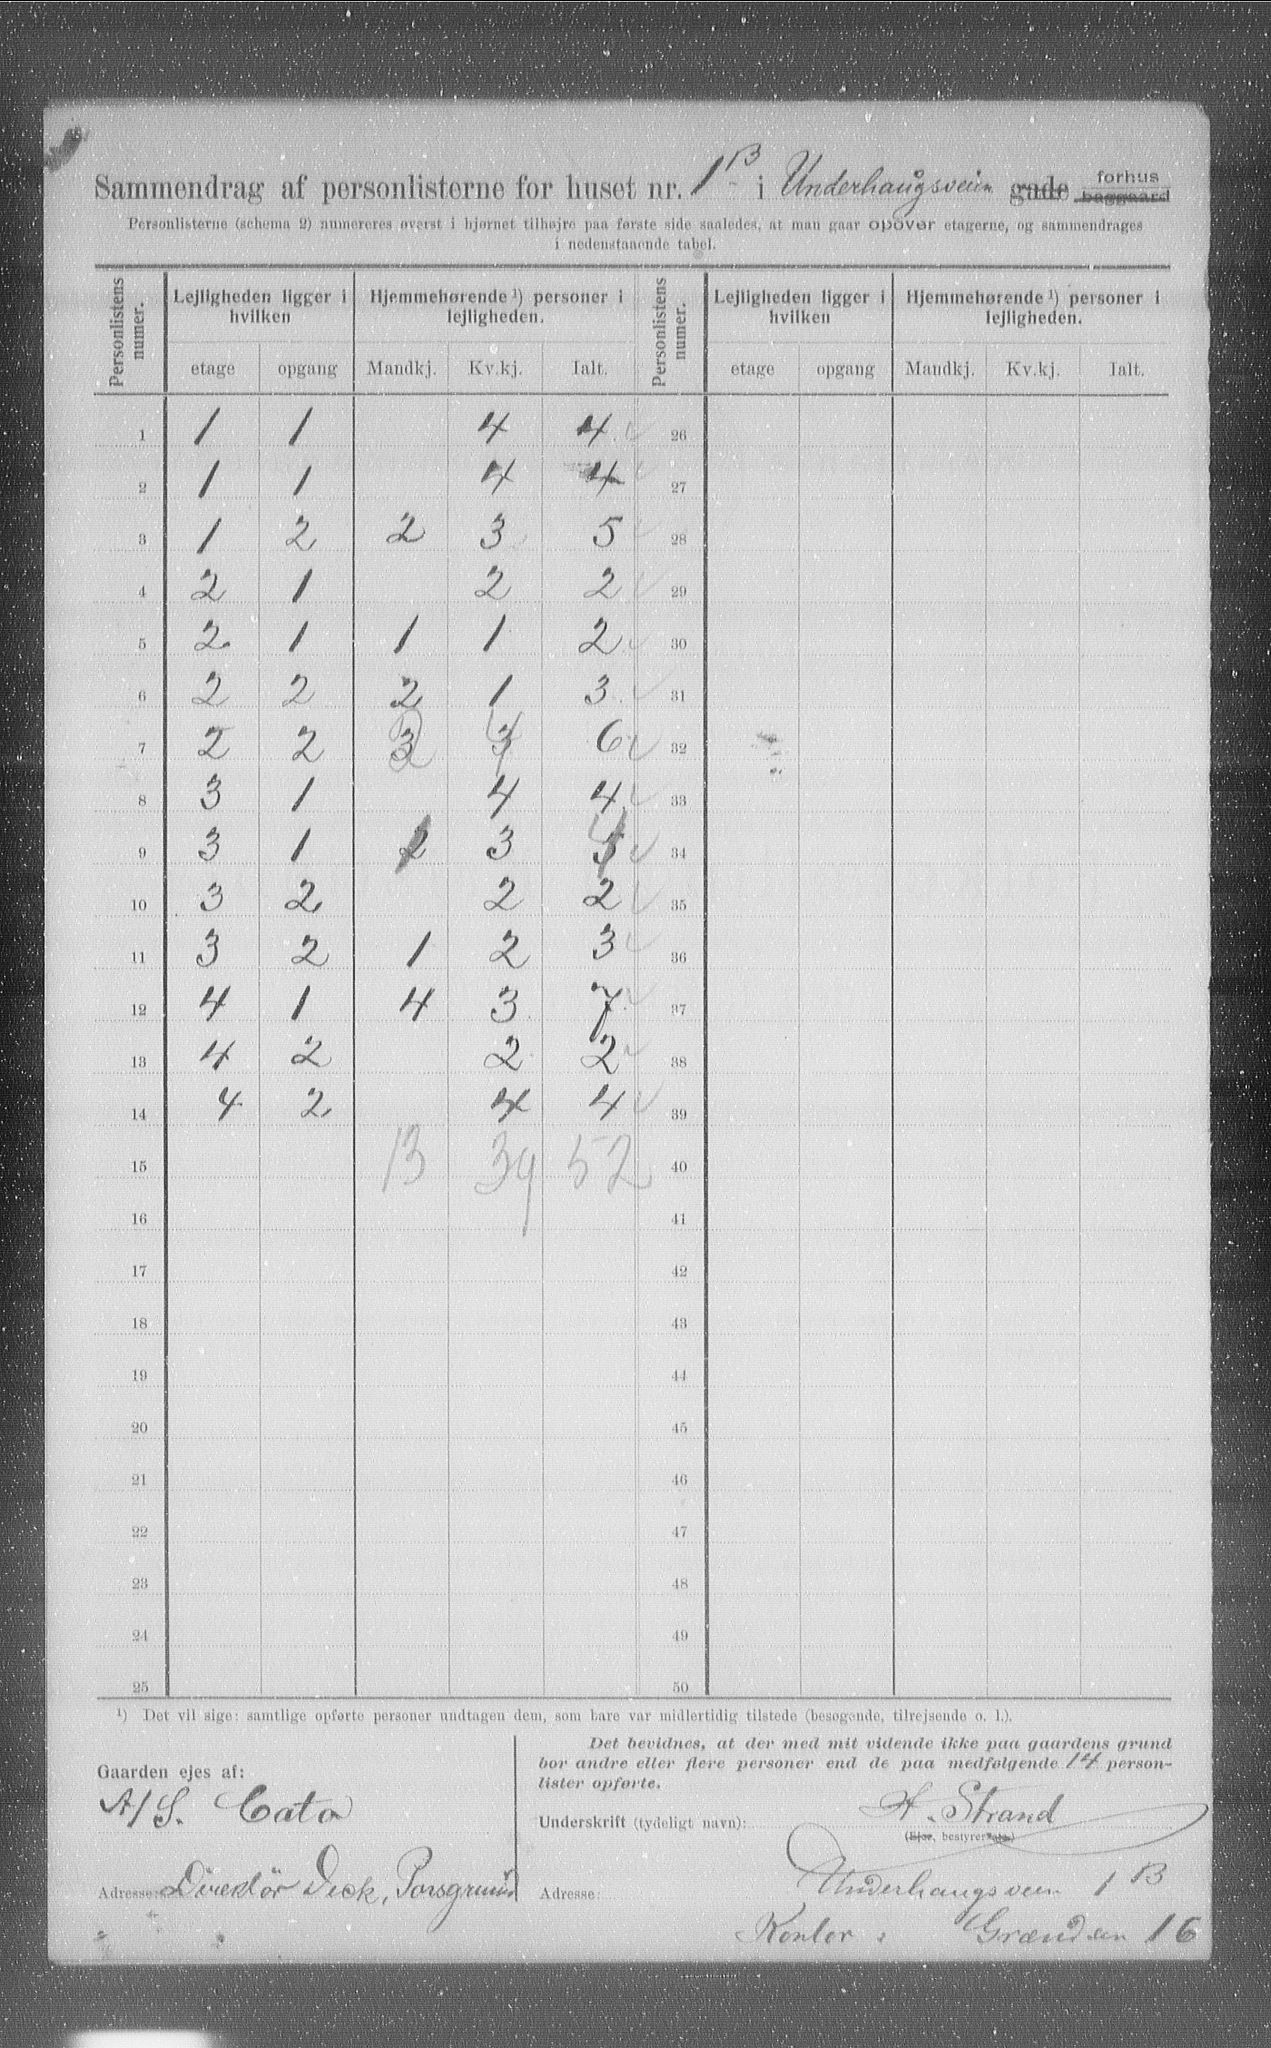 Sammendrag af personlisterne for huset nr. 1 B i Underhaugsveien gade forhus baggaard
Personlisterne (schema 2) numereres øverst i hjørnet tilhøjre paa første side saaledes, at man gaar opover etagerne, og sammendrages
i nedenstaaende tabel.
Personlistens numer. Lejligheden ligger i hvilken Hjemmehørende ¹) personer i lejligheden. Personlistens numer. Lejligheden ligger i hvilken Hjemmehørende ¹) personer i lejligheden.
etage opgang Mandkj. Kv.kj. Ialt. etage opgang Mandkj. Kv.kj. Ialt.
1 1 1 4 4 26
2 1 1 4 4 27
3 1 2 2 3 5 28
4 2 1 2 2 29
5 2 1 1 1 2 30
6 2 2 2 1 3 31
7 2 2 2 4 6 32
8 3 1 4 4 33
9 3 1 1 3 4 34
10 3 2 2 2 35
11 3 2 1 2 3 36
12 4 1 4 3 7 37
13 4 2 2 2 38
14 4 2 4 4 39
15 13 39 52 40
16 41
17 42
18 43
19 44
20 45
21 46
22 47
23 48
24 49
25 50
¹) Det vil sige: samtlige opførte personer undtagen dem, som bare var midlertidig tilstede (besøgende, tilrejsende o. l.).
Gaarden ejes af:
A/S. Cato
Adresse: Direktør Deck, Porsgrund
Det bevidnes, at der med mit vidende ikke paa gaardens grund
bor andre eller flere personer end de paa medfølgende 14 person-
lister opførte.
Underskrift (tydeligt navn): H. Strand
(Ejer, bestyrer etc.)
Adresse: Underhaugsveien 1 B
Kontor: Grændsen 16